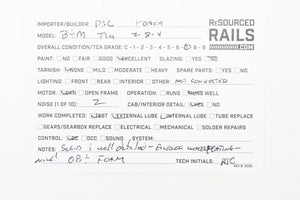 IMPORTER/BUILDER: PSC FOAM
RESOURCED RAILS .COM
MODEL: B&M T1a 2-8-4
OVERALL CONDITION/TCA GRADE: C- 1 - 2 - 3 - 4 - 5 - 6 - 7 - 8 - 9
PAINT: NO FAIR GOOD EXCELLENT GLAZING: YES NO
TARNISH: NONE MILD MODERATE HEAVY SPOTS
LIGHTING: FRONT REAR INTERIOR OTHER: NOT CONNECTED
MOTOR: CAN OPEN FRAME OPERATION: RUNS WELL
NOISE (1 OF 10): 2 CAB/INTERIOR DETAIL: YES NO
WORK COMPLETED: TEST EXTERNAL LUBE INTERNAL LUBE TUBE REPLACE
GEARS/GEARBOX REPLACE ELECTRICAL MECHANICAL SOLDER REPAIRS
CONTROL: DC DCC SOUND SYSTEM:
NOTES: SOLID & WELL DETAILED -
NICE! OB& FOAM
TECH INITIALS: RJC